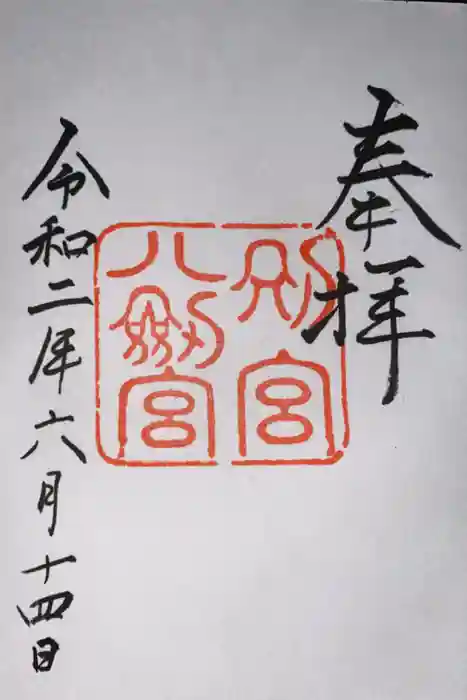 奉拝
別宮
八剱宮
令和二年六月十四日